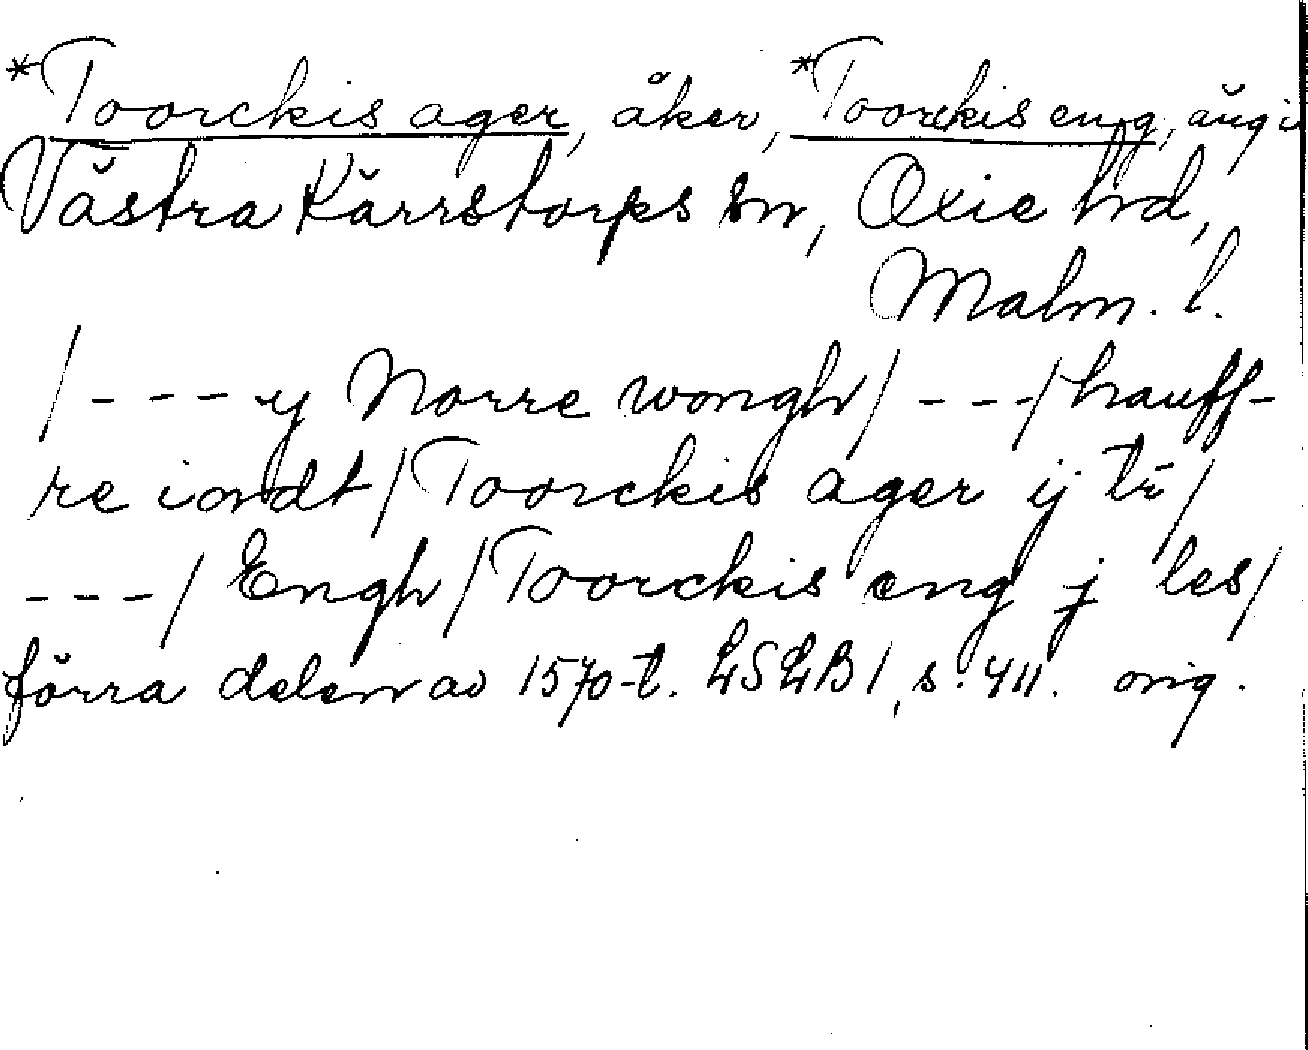 *Toorckis ager, åker, *Toorckis eng, äng i
Västra Kärrstorps sn, Oxie hd,
Malm. l.
/ - - - y Norre wongh / - - - / hauff-
re iordt / Toorckis ager ij tr /
- - - / Engh / Toorckis eng j les /
förra delen av 1570-t. LSLB 1, s. 411. orig.